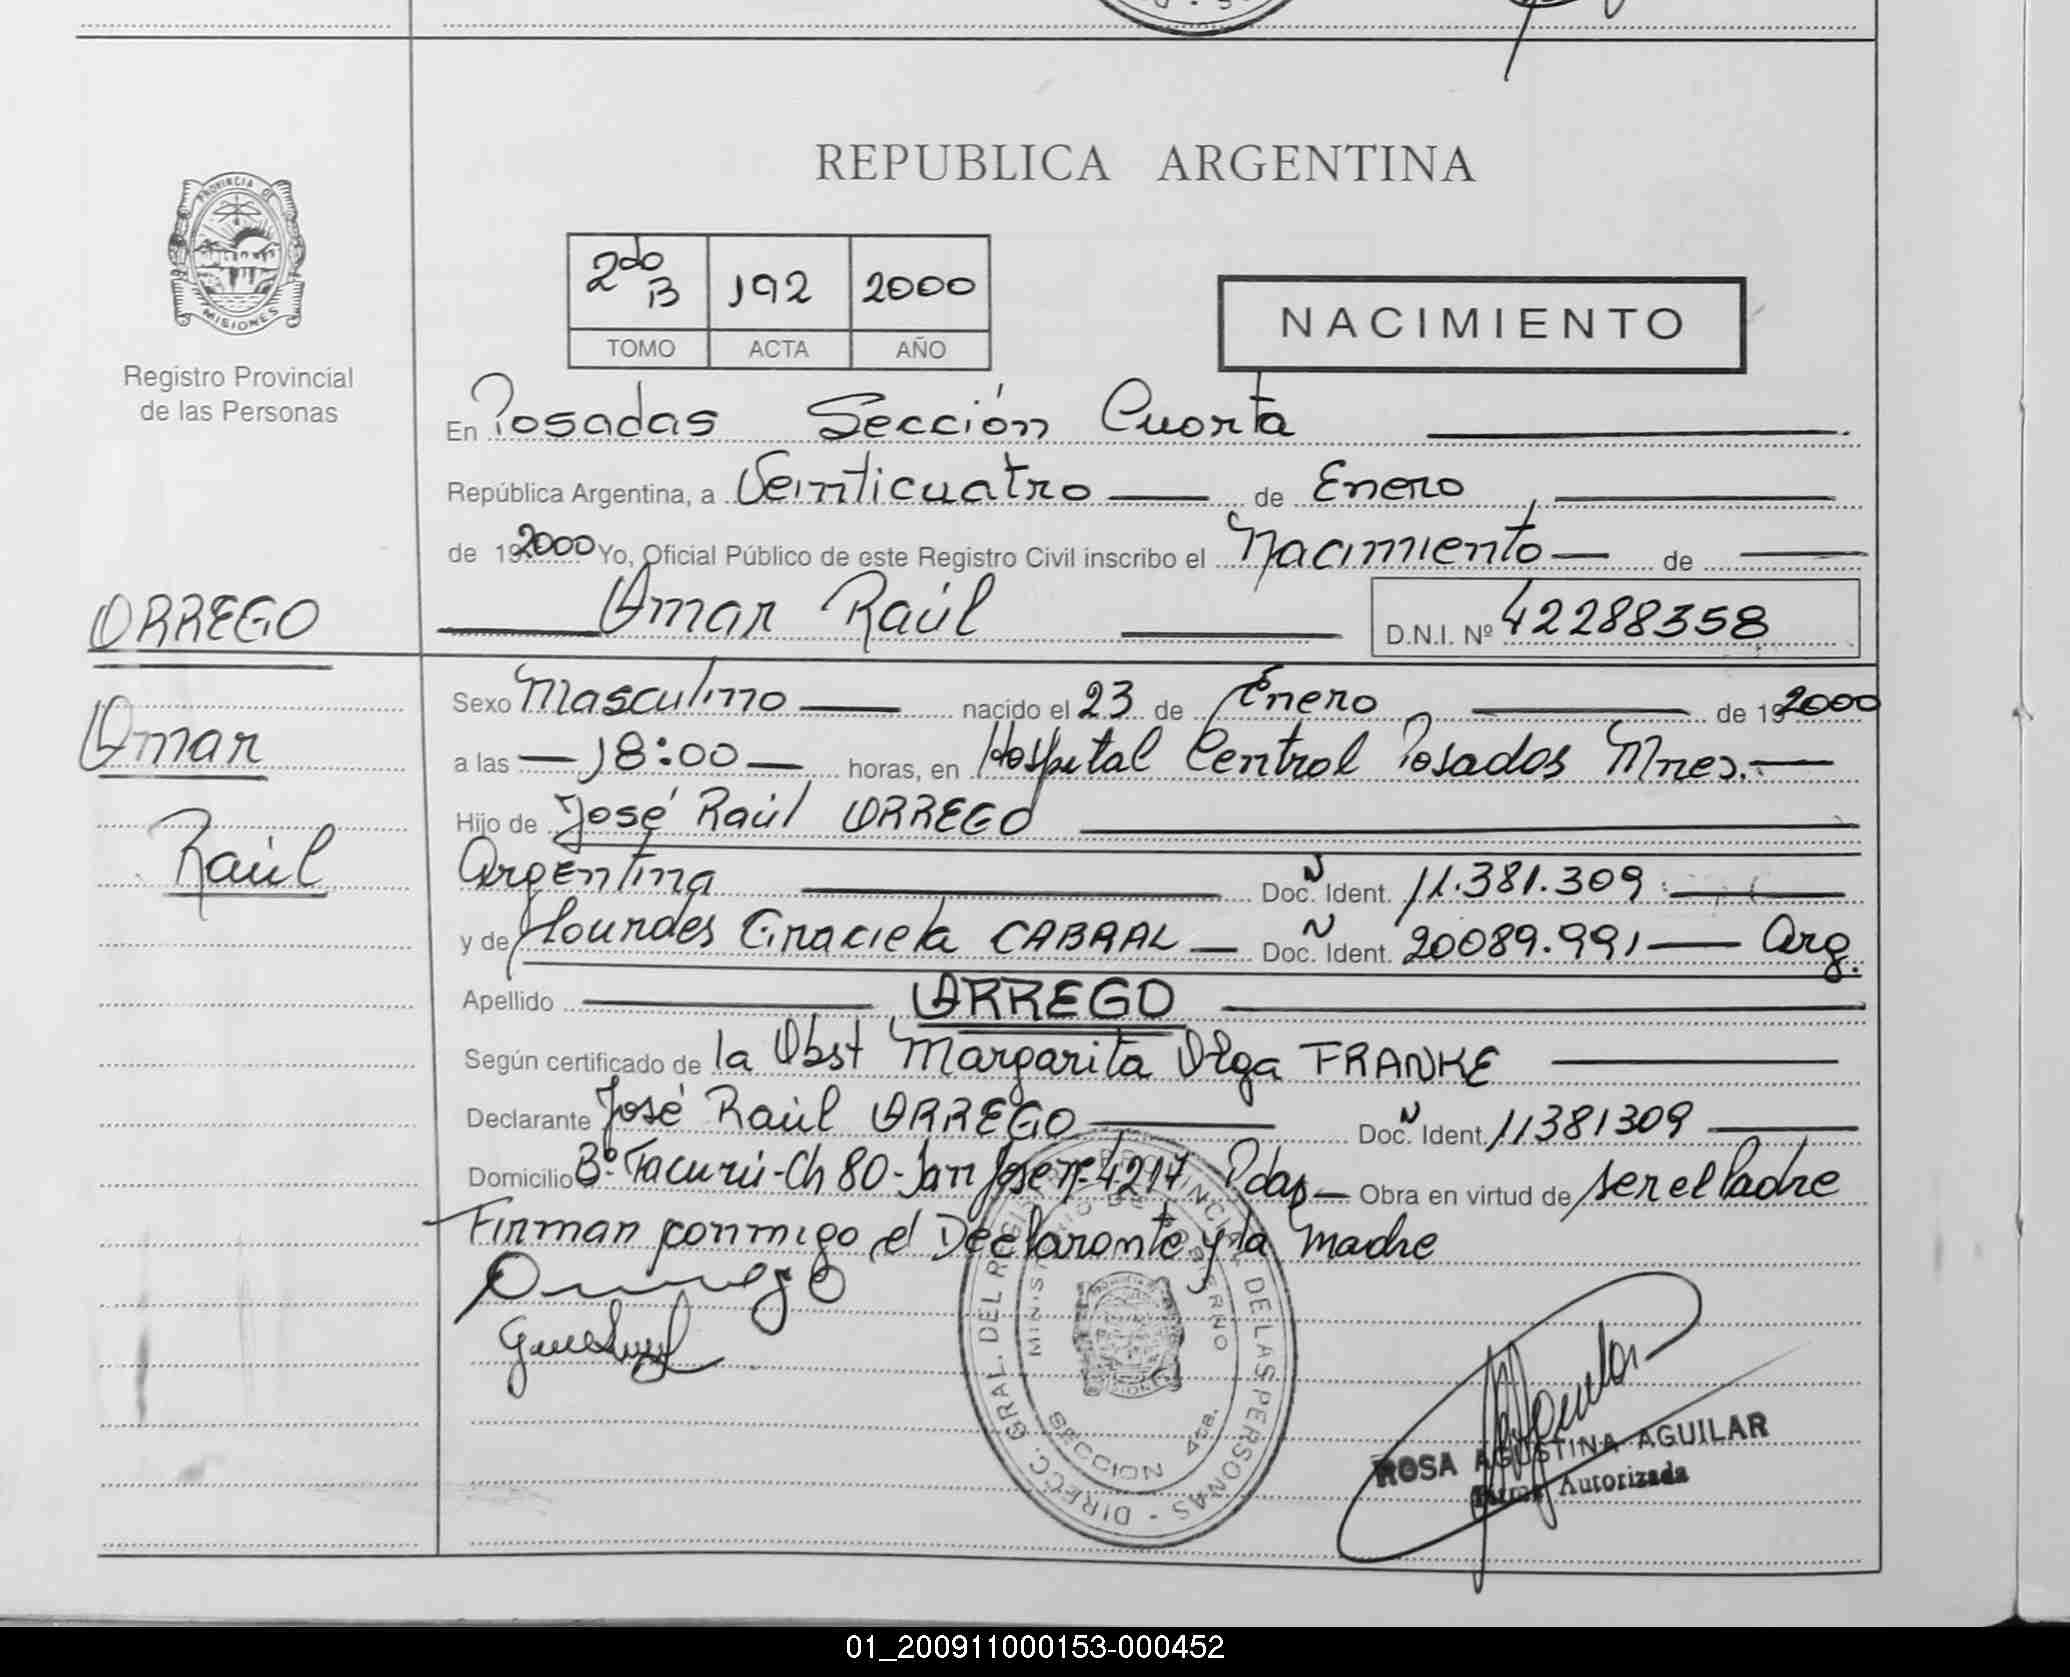 REPUBLICA ARGENTINA
PROVINCIA DE
MISIONES
Registro Provincial
de las Personas
2do B 192 2000
TOMO ACTA AÑO
NACIMIENTO
En Posadas Sección Cuarta
República Argentina, a Veinticuatro de Enero
de 19 2000 Yo, Oficial Público de este Registro Civil inscribo el Nacimiento de
Omar Raúl D.N.I. Nº 42288358
ORREGO
Omar
Raúl
Sexo Masculino nacido el 23 de Enero de 19 2000
a las 18:00 horas, en Hospital Central Posadas Mnes.
Hijo de José Raúl ORREGO
Argentina Doc. N Ident. 11.381.309
y de Lourdes Graciela CABRAL Doc. N Ident. 20089.991 Arg.
Apellido ORREGO
Según certificado de la Obst Margarita Olga FRANKE
Declarante José Raúl ORREGO Doc. N Ident. 11381309
Domicilio Bº Tacurú-Ch 80-San José nº 4217 Pdas Obra en virtud de ser el Padre
Firman conmigo el Declarante y la Madre
DIRECC. GRAL. DEL REGISTRO PROVINCIAL DE LAS PERSONAS
MINISTERIO DE GOBIERNO
SECCION 4ta.
ROSA AGUSTINA AGUILAR
Firma Autorizada
01_200911000153-000452